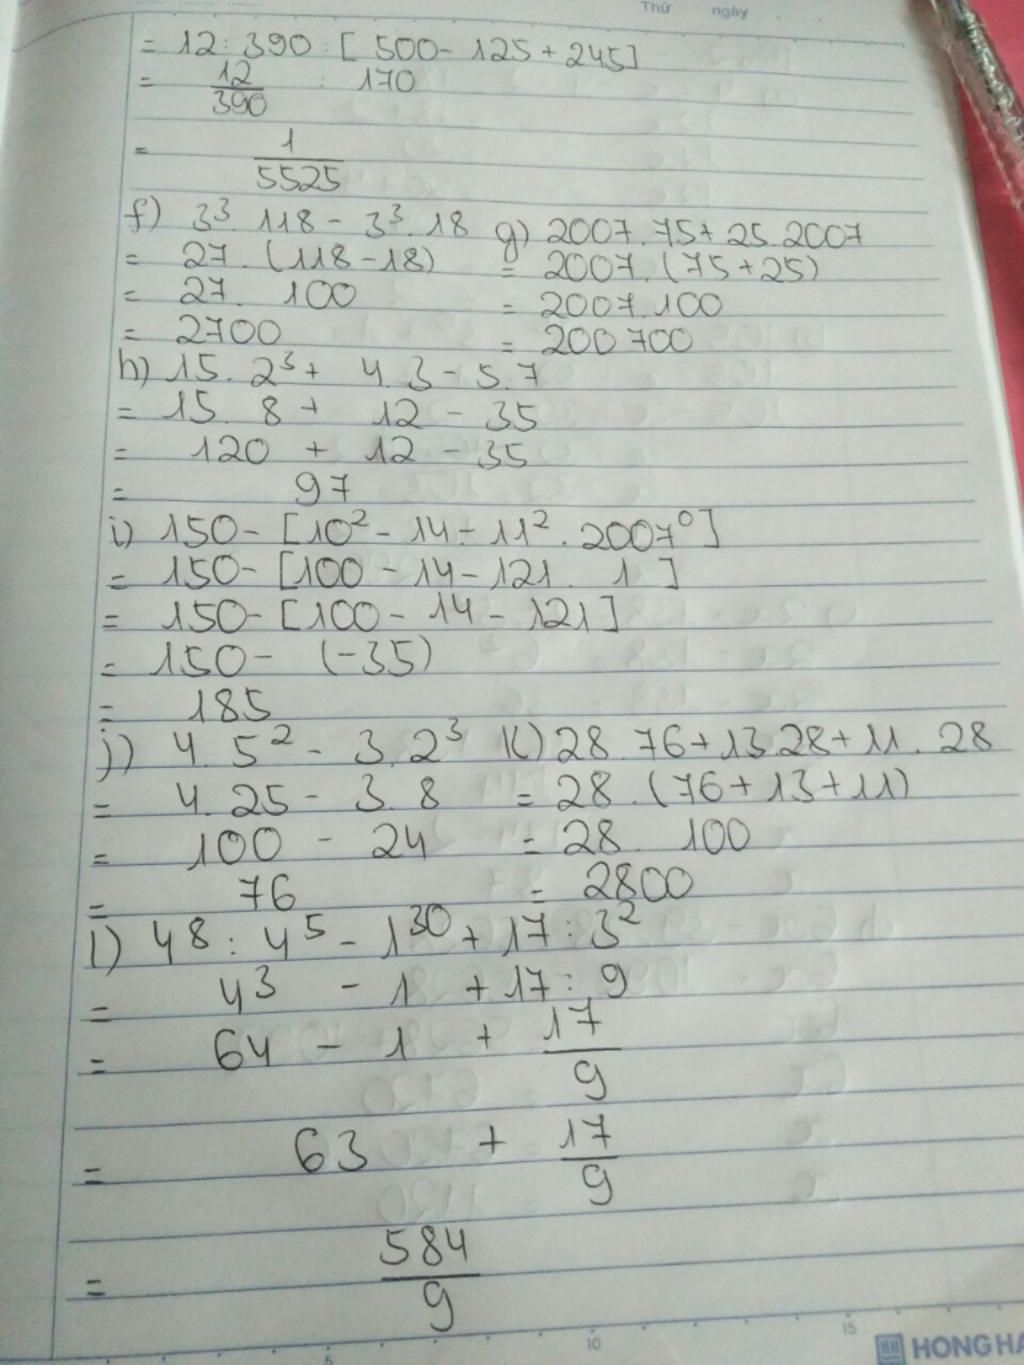 Thứ ngày
= 12 : 390 : [ 500 - 125 + 245]
= 12/390 : 170
= 1/5525
f) 3³. 118 - 3³. 18
= 27. (118 - 18)
= 27. 100
= 2700
g) 2007. 75 + 25. 2007
= 2007. (75 + 25)
= 2007. 100
= 200 700
h) 15. 2³ + 4. 3 - 5. 7
= 15. 8 + 12 - 35
= 120 + 12 - 35
= 97
i) 150 - [10² - 14 - 11². 2007⁰]
= 150 - [100 - 14 - 121. 1 ]
= 150 - [100 - 14 - 121]
= 150 - (-35)
= 185
j) 4. 5² - 3. 2³
= 4. 25 - 3. 8
= 100 - 24
= 76
k) 28 76 + 13.28 + 11. 28
= 28. (76 + 13 + 11)
= 28. 100
= 2800
l) 4⁸ : 4⁵ - 1³⁰ + 17 : 3²
= 4³ - 1 + 17 : 9
= 64 - 1 + 17/9
= 63 + 17/9
= 584/9
5 10 15
HONG HA